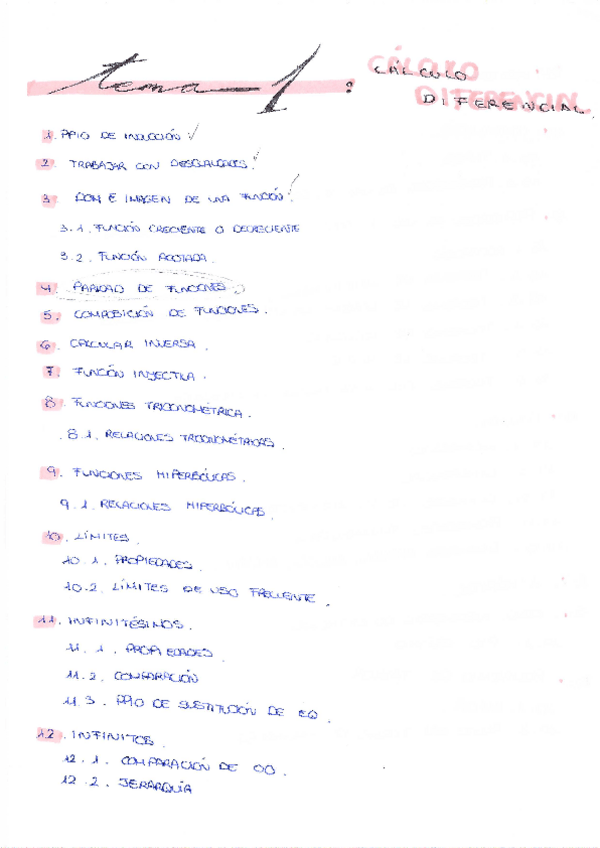 tema 1 : CÁLCULO DIFERENCIAL
1. PPIO DE INDUCCIÓN ✓
2. TRABAJAR CON DESIGUALDADES ✓
3. DOM E IMAGEN DE UNA FUNCIÓN ✓
3.1. FUNCIÓN CRECIENTE O DECRECIENTE
3.2. FUNCIÓN ACOTADA.
4. PARIDAD DE FUNCIONES
5. COMPOSICIÓN DE FUNCIONES.
6. CALCULAR INVERSA.
7. FUNCIÓN INYECTIVA.
8. FUNCIONES TRIGONOMÉTRICA.
8.1. RELACIONES TRIGONOMÉTRICAS.
9. FUNCIONES HIPERBÓLICAS.
9.1. RELACIONES HIPERBÓLICAS.
10. LÍMITES.
10.1. PROPIEDADES.
10.2. LÍMITES DE USO FRECUENTE.
11. INFINITÉSIMOS.
11.1. PROPIEDADES.
11.2. COMPARACIÓN
11.3. PPIO DE SUSTITUCIÓN DE EQ.
12. INFINITOS.
12.1. COMPARACIÓN DE ∞.
12.2. JERARQUÍA